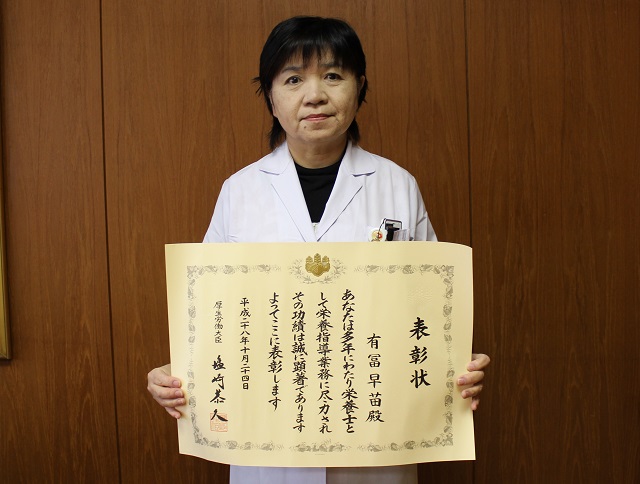 表彰状
有冨早苗殿
あなたは多年にわたり栄養士と
して栄養指導業務に尽力され
その功績は誠に顕著であります
よってここに表彰します
平成二十八年十月二十四日
厚生労働大臣
塩崎恭久